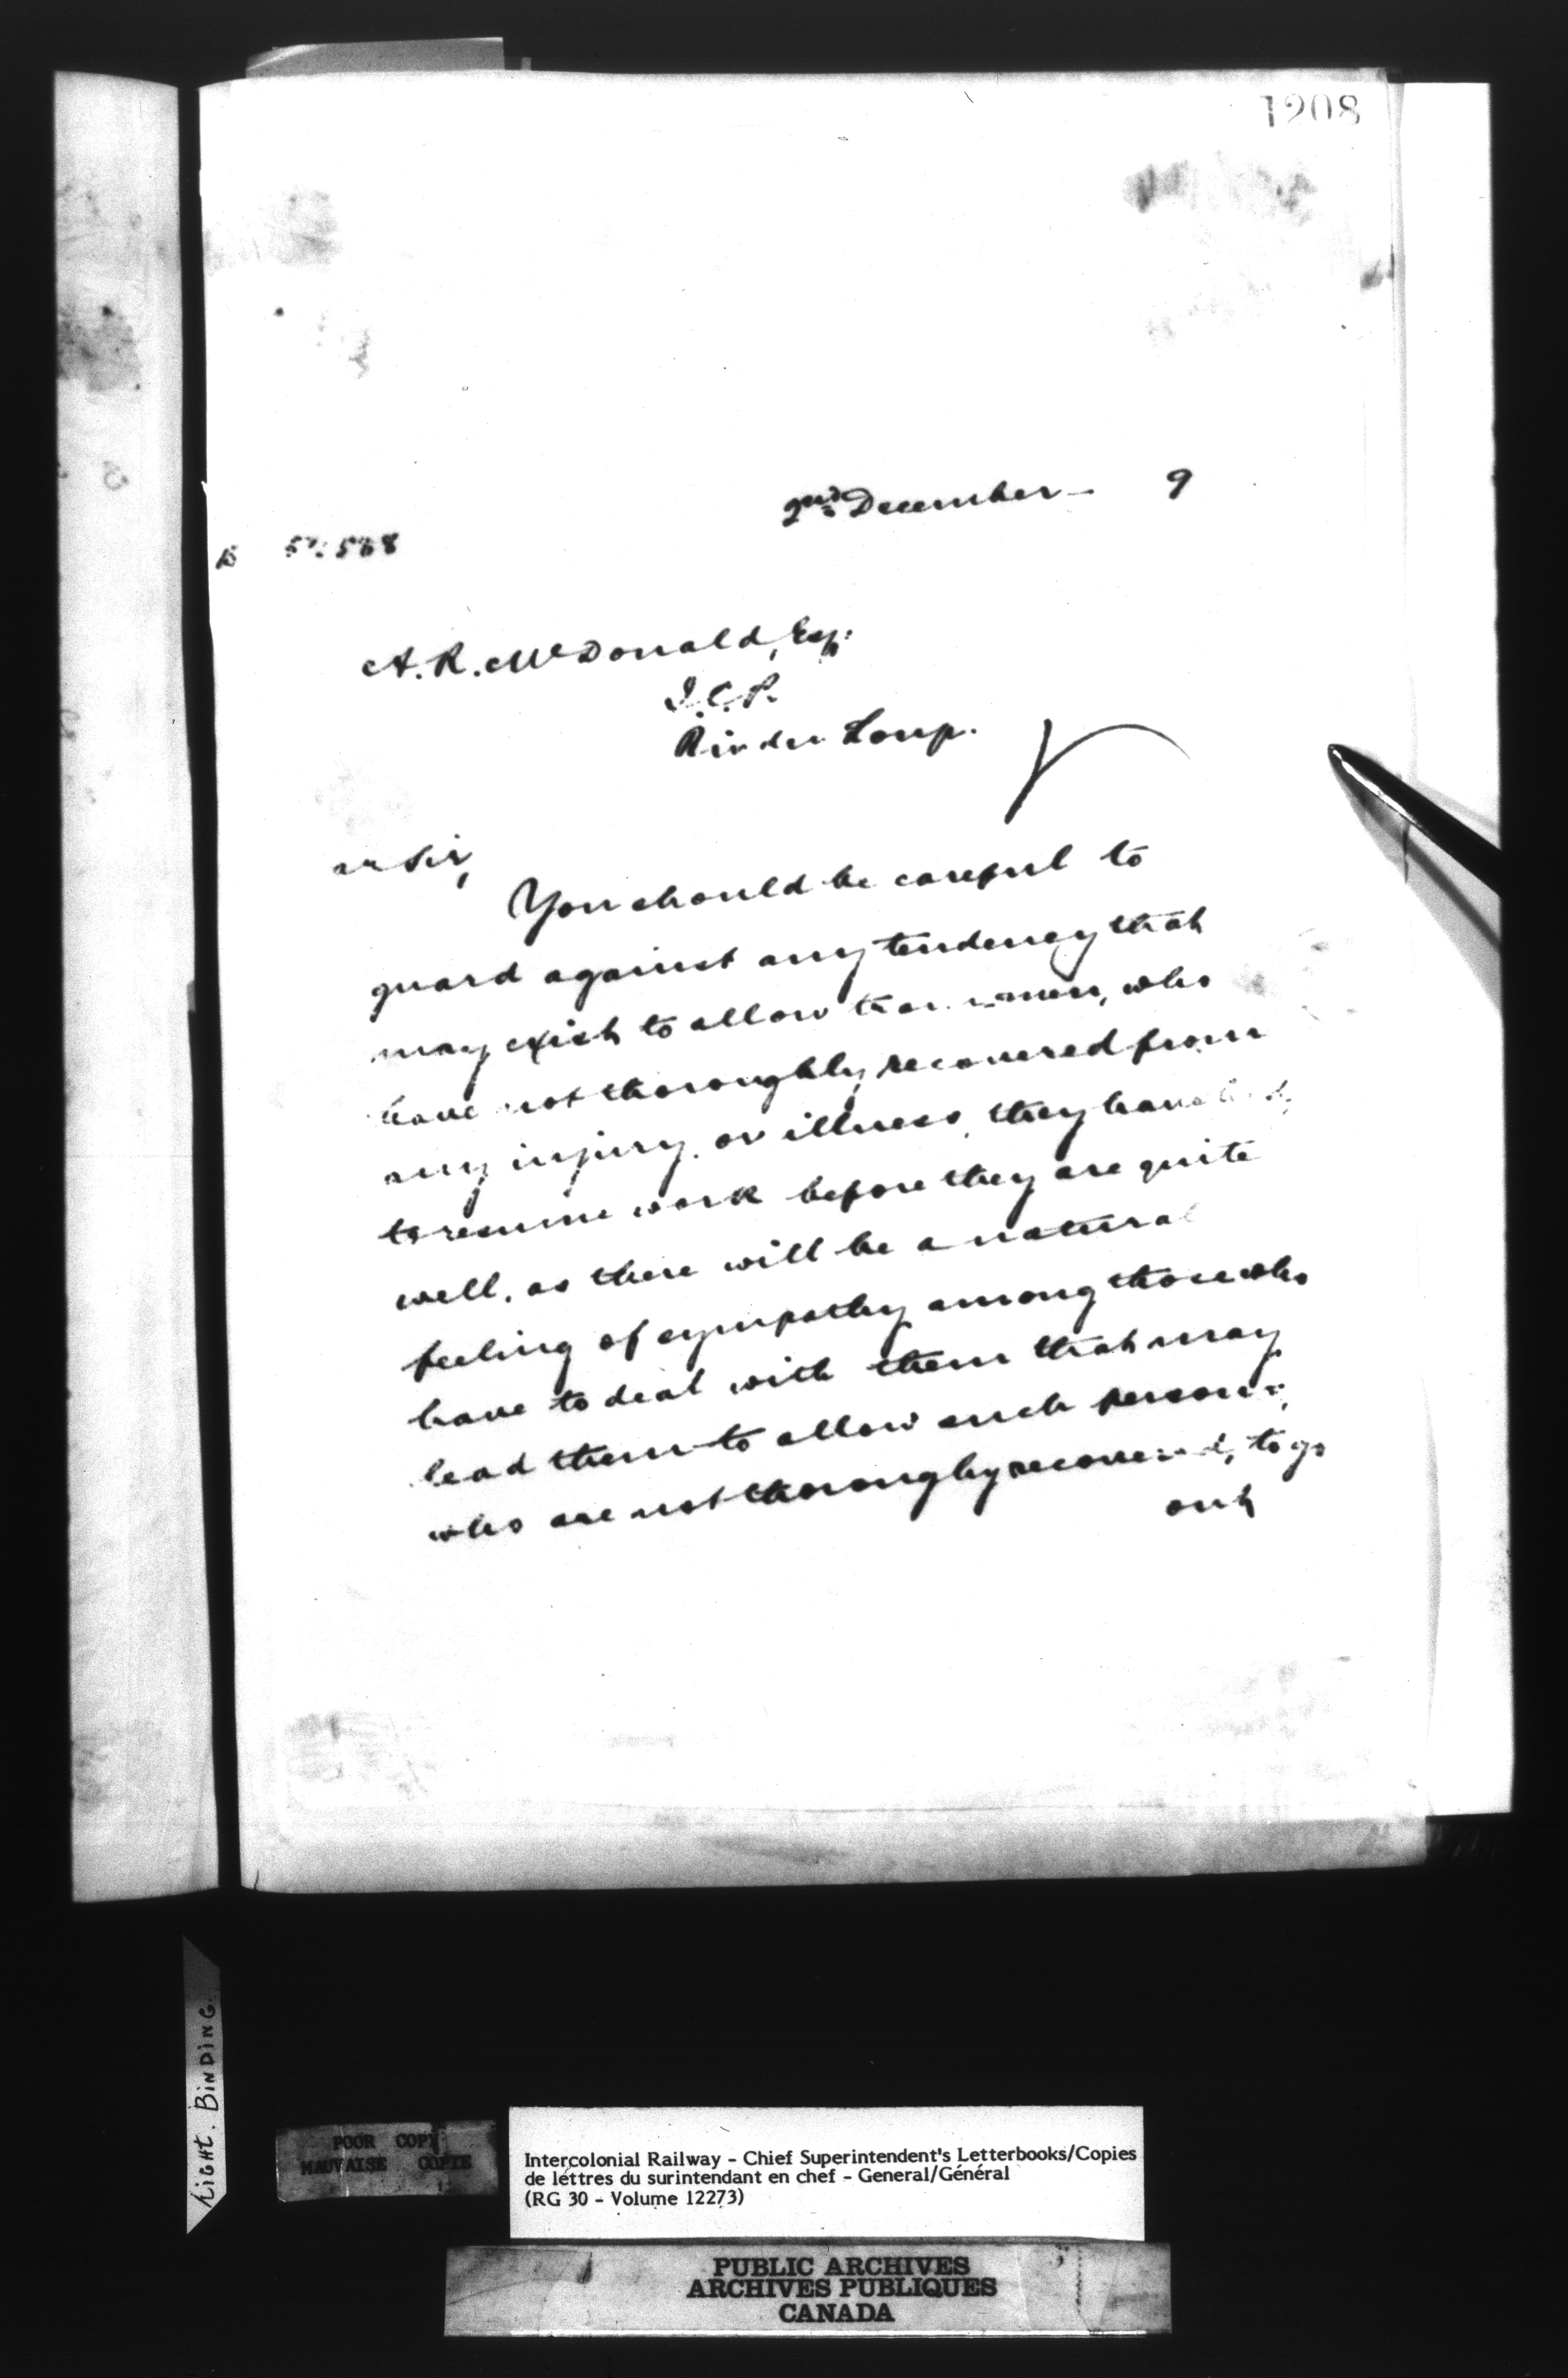 1208
2nd December - 9
A. R. McDonald, Esq:
I.C.R.
Riv du Loup.
Sir,
You should be careful to
guard against any tendency that
may exist to allow men, who
have not thoroughly recovered from
any injury, or illness, they have
to resume work before they are quite
well, as there will be a natural
feeling of sympathy among those who
have to deal with them that may
lead them to allow such persons,
who are not thoroughly recovered, to go
out
TIGHT. BINDING.
POOR COPY
MAUVAISE COPIE
Intercolonial Railway - Chief Superintendent's Letterbooks/Copies
de lettres du surintendant en chef - General/Général
(RG 30 - Volume 12273)
PUBLIC ARCHIVES
ARCHIVES PUBLIQUES
CANADA